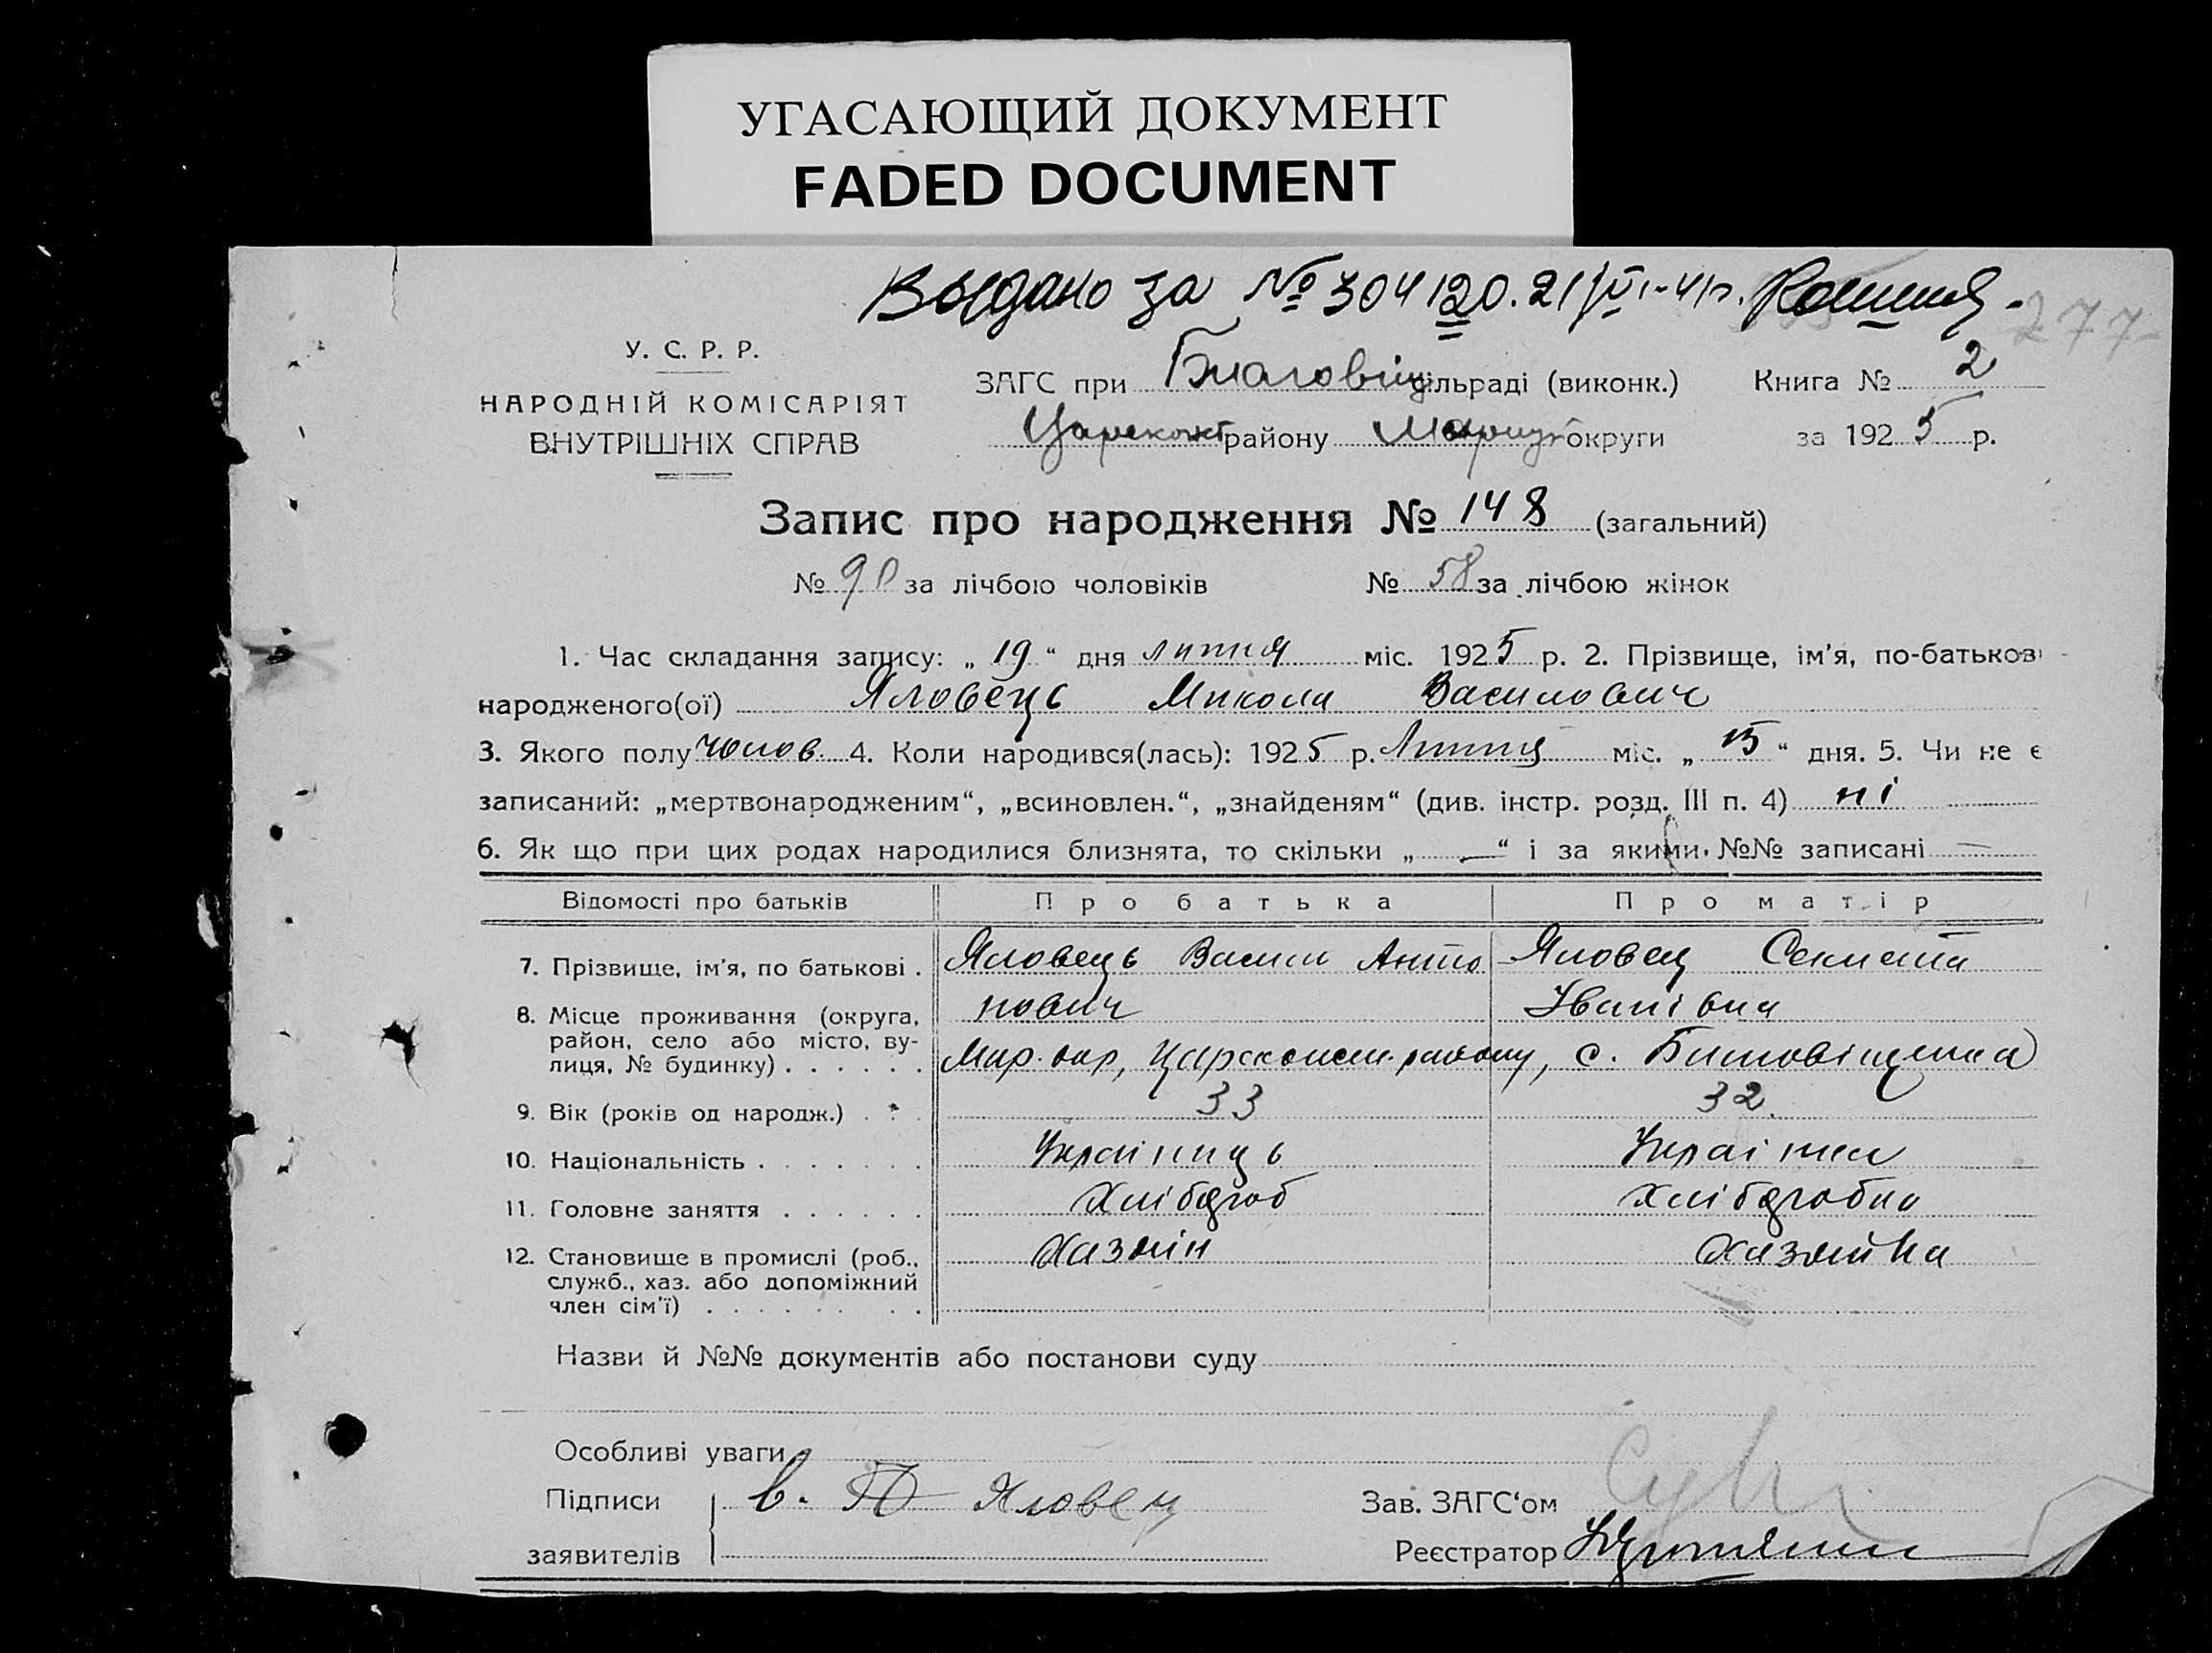 УГАСАЮЩИЙ ДОКУМЕНТ
FADED DOCUMENT
Выдано за № 304 120. 21/VI-41р.
277
У. С. Р. Р.
НАРОДНІЙ КОМІСАРІЯТ
ВНУТРІШНІХ СПРАВ
ЗАГС при Благовіщ сільраді (виконк.) Книга № 2
Царекон району Маріуп округи за 1925 р.
Запис про народження № 148 (загальний)
№ 90 за лічбою чоловіків № 58 за лічбою жінок
1. Час складання запису: „ 19 “ дня липня міс. 1925 р. 2. Прізвище, ім’я, по-батькові
народженого(ої) Яловець Микола Василович
3. Якого полу чолов. 4. Коли народився(лась): 1925 р. Липця міс. „ 15 “ дня. 5. Чи не є
записаний: „мертвонародженим“, „всиновлен.“, „знайденям“ (див. інстр. розд. III п. 4) ні
6. Як що при цих родах народилися близнята, то скільки „ — “ і за якими №№ записані —
Відомості про батьків Про батька Про матір
7. Прізвище, ім’я, по батькові . Яловець Васил Анто Яловец Секлета
нович Іванівна
8. Місце проживання (округа,
район, село або місто, ву-
лиця, № будинку) . . . . . . Мар. окр, Царекон. району, с. Благовіщенка
9. Вік (років од народж.) . . . 33 32.
10. Національність . . . . . . . Украінець Украінка
11. Головне заняття . . . . . . Хлібороб Хліборобка
12. Становище в промислі (роб.,
служб., хаз. або допоміжний
член сім’ї) . . . . . . . . Хазяїн Хазяйка
Назви й №№ документів або постанови суду
Особливі уваги
Підписи в. Яловец Зав. ЗАГС‘ом
заявителів Реєстратор